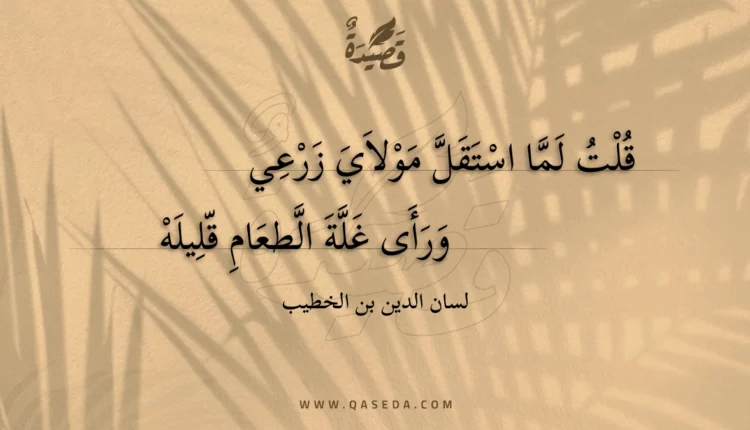 قَصِيْدَةٌ
قُلْتُ لَمَّا اسْتَقَلَّ مَوْلاَيَ زَرْعِي
وَرَأَى غَلَّةَ الَّطعَامِ قّلِيلَهْ
لسان الدين بن الخطيب
WWW.QASEDA.COM